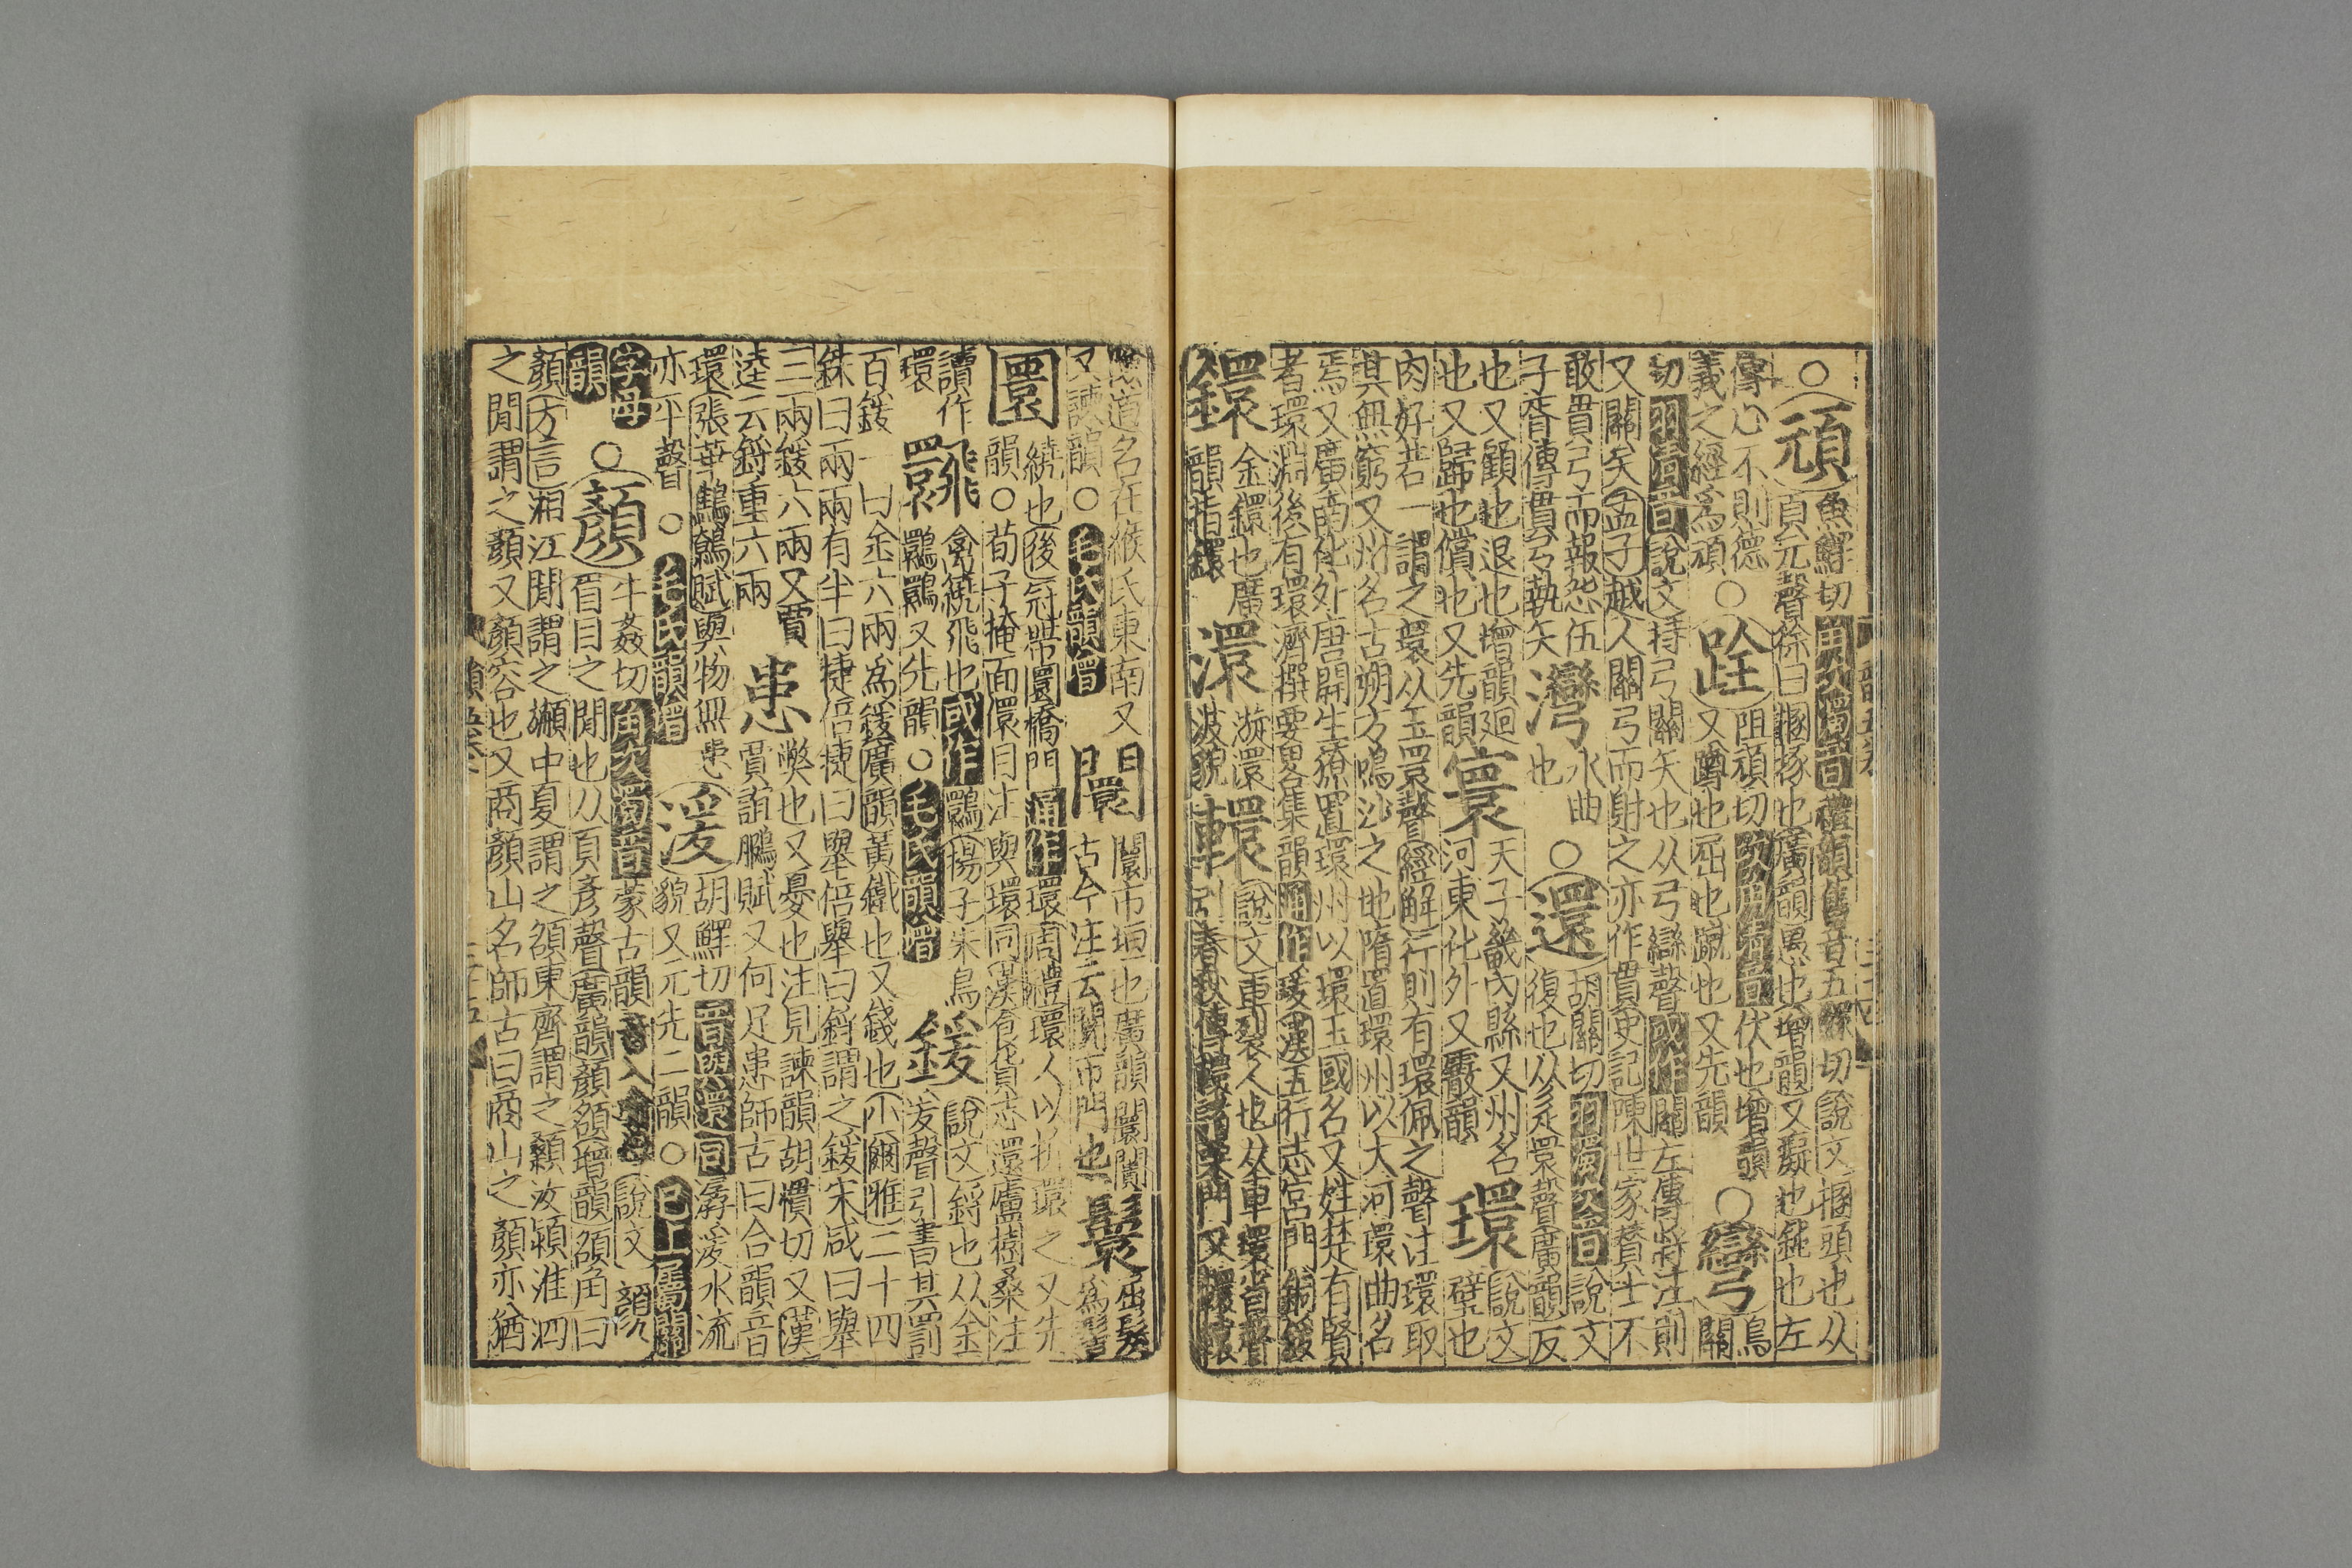 ○頑魚鰥切角次濁音禮韻舊音五鰥切說文㮯頭也从
頁元聲徐曰㮯㧻也廣韻愚也增韻又癡也鈍也左
傳心不則德義之經爲頑○跧阻頑切次商清音伏也增韻又蹲也屈也蹴也又先韻○彎烏關
切羽清音說文持弓關矢也从弓䜌聲或作關左傳將注則
又關矣孟子越人關弓而射之亦作貫史記陳世家賛士不
敢貫弓而報怨伍子胥傳貫弓執矢灣水曲也○還胡關切羽濁次音說文復也从辵瞏聲廣韻反
也又顧也退也增韻廻也又歸也償也又先韻寰天子畿內縣又州名河東化外又霰韻環說文璧也
肉好若一謂之環从玉瞏聲經解行則有環佩之聲注環取
其無窮又州名古朔方鳴沙之地隋置環州以大河環曲名
焉又廣南化外唐開生獠置環州以環玉國名又姓楚有賢
者環淵後有環濟撰要畧集韻通作鍰漢五行志宮門銅鍰
鐶金鐶也廣韻指鐶澴漩澴波貌轘說文車裂人也从車瞏省聲引春秋傳轘諸栗門又轘轅
險道名在緱氏東南又又諫韻○毛氏韻增闤闤市垣也廣韻闤闠古今注云闤市門也鬟屈髮爲髻
圜繞也後冠帶圜橋門通作環周禮環人以拆環之又先
韻○荀子掩面儇目注與環同漢食貨志還廬樹桑注
讀作環禽繞飛也或作揚子朱鳥又先韻○毛氏韻增鍰說文鋝也从金爰聲引書其罰
百鍰一曰金六兩爲鍰廣韻黃鐵也又錢也小爾雅二十四
銖曰兩兩有半曰捷倍捷曰舉倍舉曰鋝謂之鍰宋咸曰舉
三兩鍰六兩又賈逵云鋝重六兩患弊也又憂也注見諫韻胡慣切又漢賈誼鵬賦又何足患師古曰合韻音
環張華鷦鷯賦與物無患亦平聲○毛氏韻增湲胡鰥切音與還同潺湲水流貌又元先二韻○已上屬關
字母韻○顏牛姦切角次濁音蒙古韻音入喻母說文顏眉目之閒也从頁彥聲廣韻顏頟增韻頟角曰
顏方言湘江閒謂之顏中夏謂之頟東齊謂之顙汝潁淮泗
之閒謂之顏又顏容也又商顏山名師古曰商山之顏亦猶